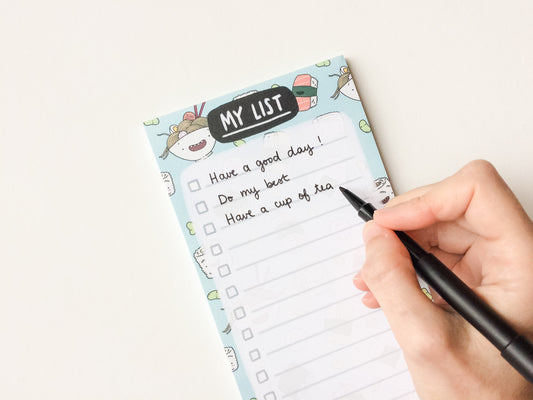 MY LIST
Have a good day!
Do my best
Have a cup of tea